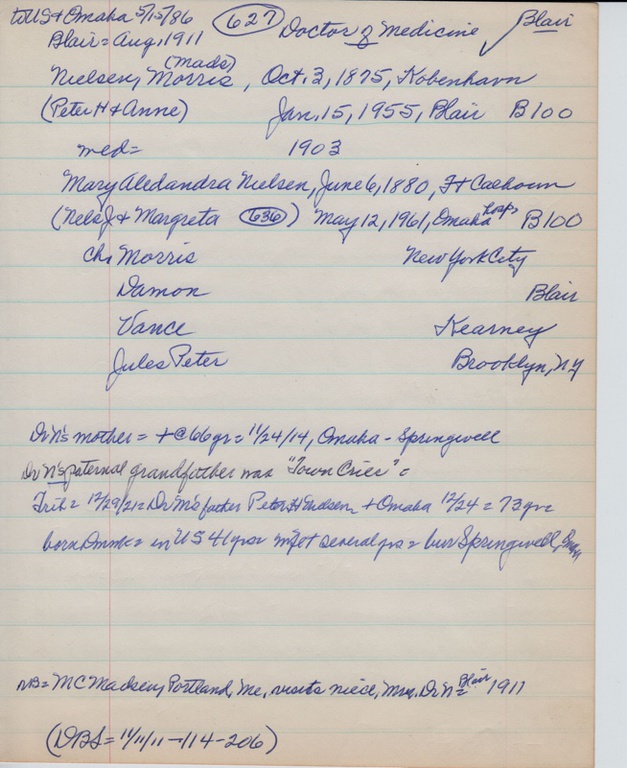 to US & Omaha 5/15/86 627 Doctor of Medicine ✓ Blair
Blair = Aug, 1911
(Mads)
Nielsen, Morris, Oct. 3, 1875, Kobenhavn
(Peter H & Anne) Jan. 15, 1955, Blair B100
med = 1903
Mary Aledandra Nielsen, June 6, 1880, Ft Calhoun
(Nels J & Margreta 636) May 12, 1961, Omaha hosp B100
Ch, Morris New York City
Damon Blair
Vance Kearney
Jules Peter Brooklyn, NY
Dr N's mother = + @ 66 yr = 11/24/14, Omaha - Springwell
Dr N's paternal grandfather was "Town Crier" =
Trib = 12/29/21 = Dr N's father Peter H + Omaha 12/24 = 73 yr =
born Dnmk = in US 41 yrs = several yrs = bur Springwell,
NB = MC Madsen, Portland, Me, visits niece, Mrs. Dr N = Blair 1911
(DBS = 11/11/11 - 114 - 206)